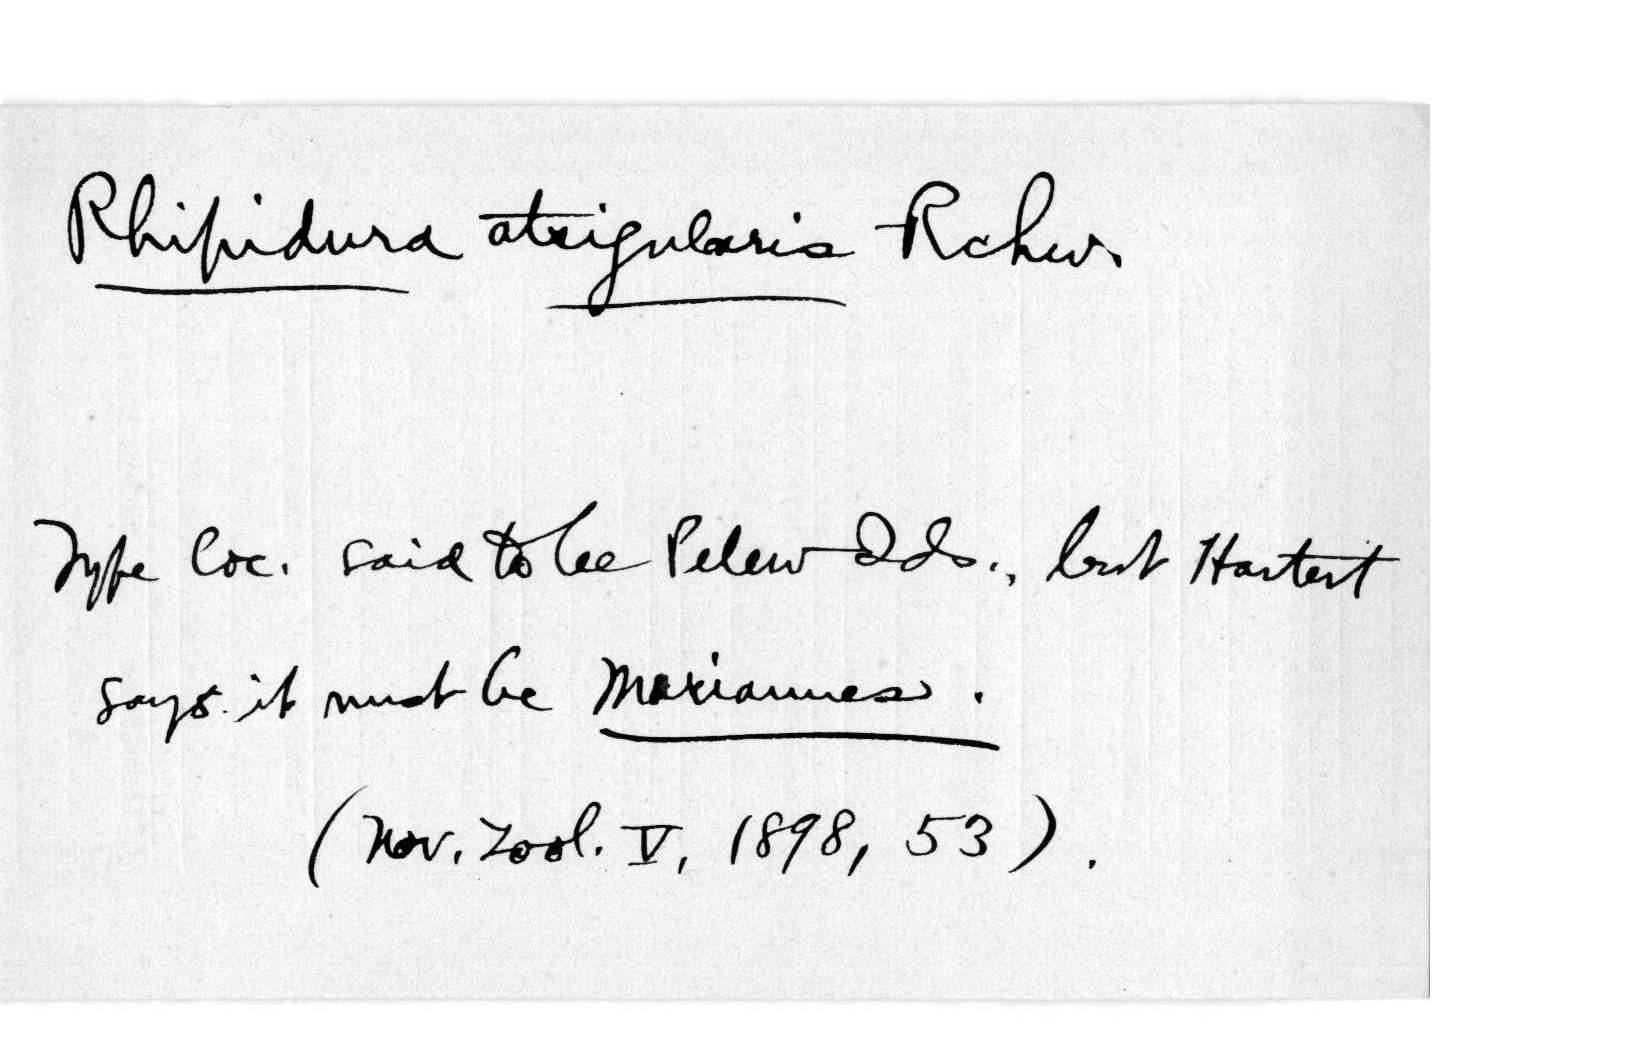 Rhipidura atrigularis Rchw.
Type loc. said to be Pelew Ids., but Hartert
says it must be Mariannes.
(Nov. Zool. V, 1898, 53).